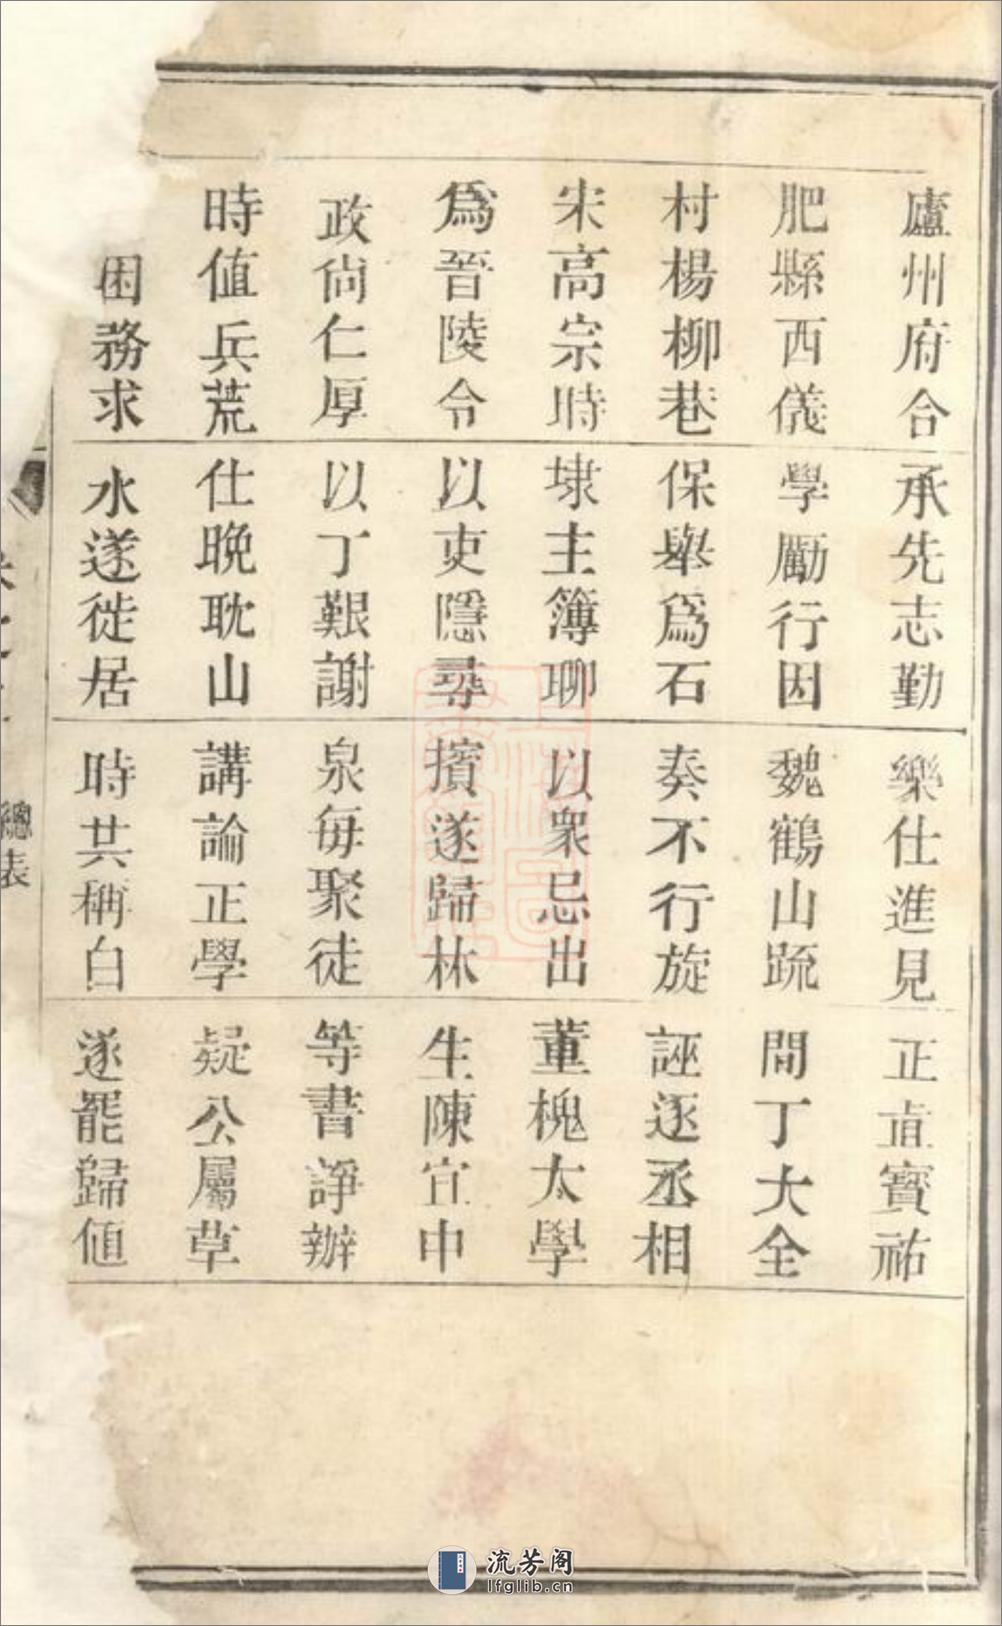 廬州府合
肥縣西儀
村楊柳巷
宋高宗時
爲晉陵令
政尙仁厚
時值兵荒
困務求
承先志勤
學勵行因
保舉爲石
埭主簿聊
以吏隱尋
以丁艱謝
仕晚耽山
水遂徙居
樂仕進見
魏鶴山䟽
奏不行旋
以衆忌出
擯遂歸林
泉每聚徒
講論正學
時共稱白
正直寳祐
間丁大全
誣逐丞相
董槐太學
生陳宜中
等書諍辦
疑公屬草
遂罷歸値
總表
流芳阁
lfglib.cn